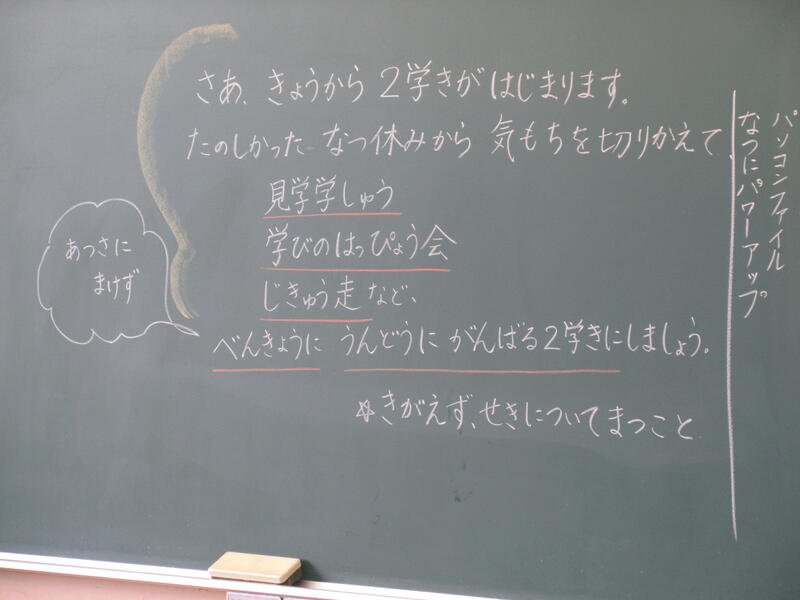 さあ、きょうから2学きがはじまります。
たのしかったなつ休みから気もちを切りかえて、
見学学しゅう
学びのはっぴょう会
じきゅう走など、
べんきょうにうんどうにがんばる2学きにしましょう。
☆きがえず、せきについてまつこと
あつさに
まけず
パソコンファイル
なつにパワーアップ